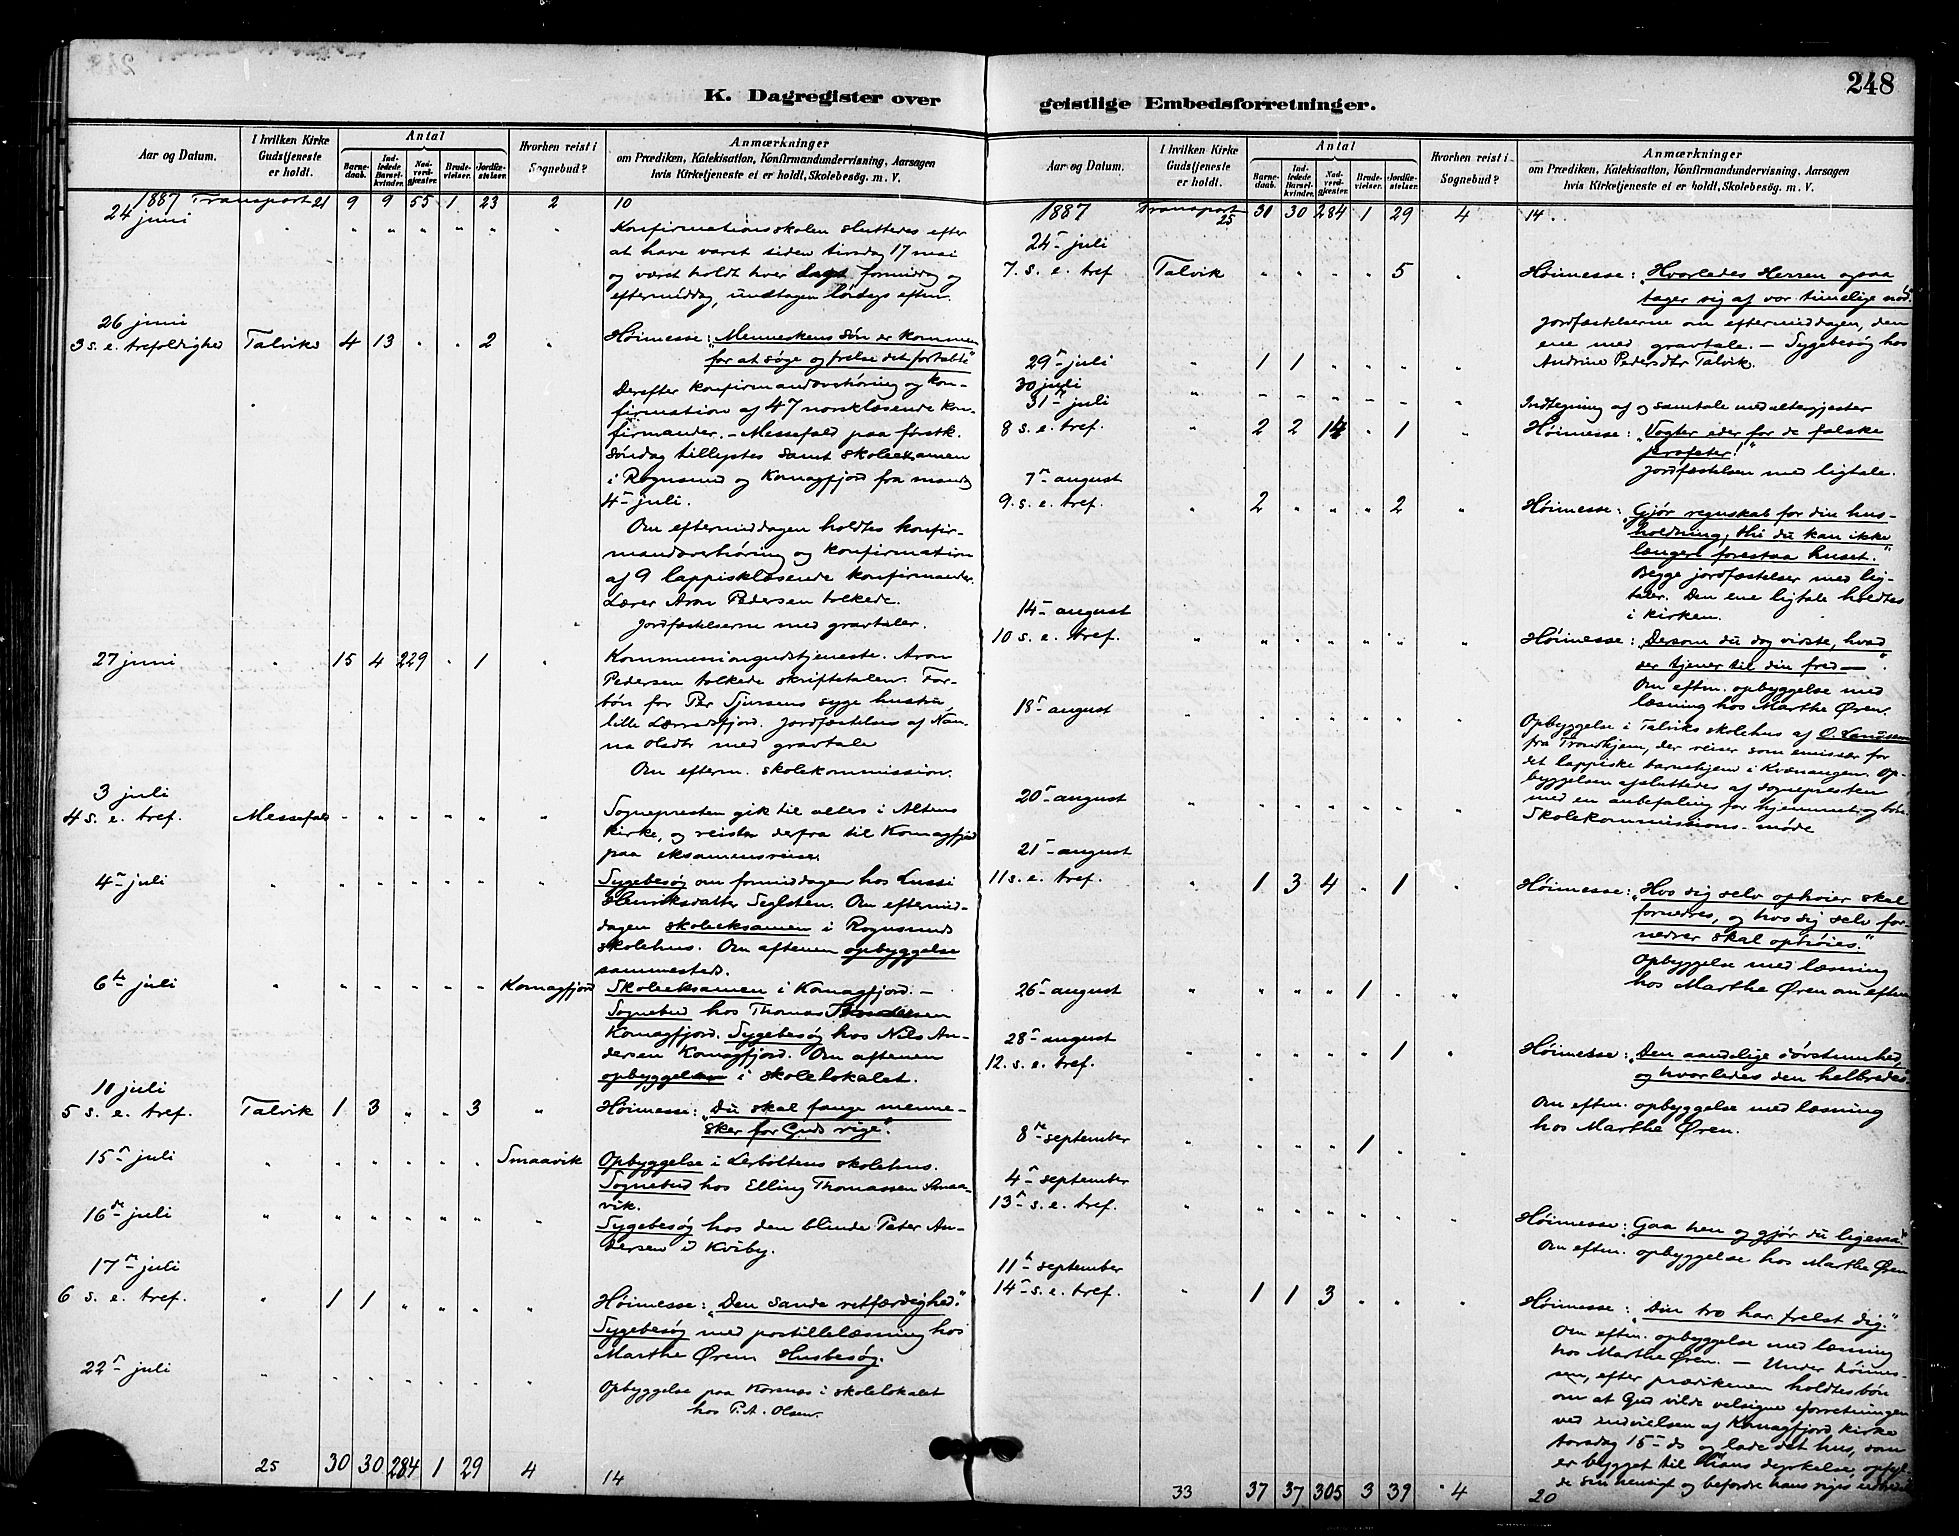 248
K. Dagregister over
geistlige Embedsforretninger.
Aar og Datum.
I hvilken Kirke Gudstjeneste er holdt.
Antal
Barnedaab.
Indledede Barselkvinder.
Nadverdgjæster.
Brudevielser.
Jordfæstelser.
Hvorhen reist i Sognebud?
Anmærkninger
om Prædiken, Katekisation, Konfirmandundervisning, Aarsagen
hvis Kirketjeneste et er holdt, Skolebesøg. m. V.
1887 Transport 21 9 9 55 1 23 2 10
24 juni " " " " " " " Konfirmationsskolen sluttedes efter
at have varet siden tirsdag 17 mai
og været holdt hver dags formidag og
eftermiddag, undtagen lördags eftm.
26 juni
3 s. e. trefoldighed Talviks 4 13 " " 2 Høimesse: „Menneskens Sön er kommen
for at søge og frelse det fortabte"
Derefter konfirmandoverhöring og kon-
firmation af 47 norsklæsende kon-
firmander. – Messefald paa förstk.
söndag tillystes samt skoleexamen
i Rognsund og Komagfjord fra mandag
4de juli.
Om eftermiddagen holdtes konfir-
mandoverhöring og konfirmation
af 9 lappisklæsende konfirmander.
Lærer Aron Pedersen tolkede.
Jordfæstelserne med gravtaler.
27 juni " 15 4 229 " 1 " Kommuniongudstjeneste. Aron
Pedersen tolkede skriftetalen. For-
bön for Per Sjursens syge hustru,
lille Lærresfjord. Jordfæstelsen af Nan-
na Olsdtr med gravtale
Om efterm. skolekommission.
3 juli
4 s. e. tref. Messefald " " " " " " Sognepresten gik til alters i Altens
kirke, og reiste derfra til Komagfjord
paa eksamensreise.
4de juli " " " " " " " Sygebesög om formiddagen hos Lussi
Henriksdatter Seglsten. Om eftermid-
dagen skoleeksamen i Rognsunds
skolehus. Om aftenen opbyggelse
sammesteds.
6te juli " " " " " " Komagfjord Skoleeksamen i Komagfjord. –
Sognebud hos Thomas
Komagfjord. Sygebesög hos Nils An-
dersen Komagfjord. Om aftenen
opbyggelse i skolelokalet.
10 juli
5 s. e. tref. Talvik 1 3 " " 3 " Høimesse: „Du skal fange menne-
sker for Guds rige".
15de juli " " " " " " Smaavik Opbyggelse i Lerboltens skolehus.
Sognebud hos Elling Thomassen Smaa-
vik.
16de juli " " " " " " " Sygebesög hos den blinde Peter An-
dersen i Kviby.
17de juli
6 s. e. tref. " 1 1 " " " " Høimesse: „Den sande retfærdighed."
Sygebesög med postillelæsning hos
Marthe Øren. Husbesög.
22de juli " " " " " " " Opbyggelse paa Korsnæs i skolelokalet
hos P. A. Olsen.
25 30 30 284 1 29 4 14
Aar og Datum.
I hvilken Kirke Gudstjeneste er holdt.
Antal
Barnedaab.
Indledede Barselkvinder.
Nadverdgjæster.
Brudevielser.
Jordfæstelser.
Hvorhen reist i Sognebud?
Anmærkninger
om Prædiken, Katekisation, Konfirmandundervisning, Aarsagen
hvis Kirketjeneste et er holdt, Skolebesøg. m. V.
1887 Transport 25 30 30 284 1 29 4 14
24de juli
7. s. e. tref. Talvik " " " " 5 " Høimesse: „Hvorledes Herren ogsaa
tager sig af vor timelige nöd."
Jordfæstelserne om eftermiddagen, den
ene med gravtale. – Sygebesög hos
Andrine Pedersdtr Talvik.
29de juli " 1 1 " " " "
30 juli " " " " " " " Indtegning af og samtale med altergjester
31te juli
8 s. e. tref. 2 2 14 " 1 " Høimesse: „Vogter eder for de falske
profeter!"
Jordfæstelsen med ligtale.
7de august
9. s. e. tref. " 2 " " " 2 " Høimesse: „Gjør regnskab for din hus-
holdning, thi du kan ikke
længere forestaa huset."
Begge jordfæstelser med lig-
taler. Den ene ligtale holdtes
i kirken.
14de august
10 s. e. tref. " " " " " " " Høimesse: „Dersom du dog vidste, hvad
der tjener til din fred –".
Om eftm. opbyggelse med
læsning hos Marthe Øren.
18de august " " " " " " " Opbyggelse i Talviks skolehus af O. Landsem
fra Trondhjem, der reiser som emissær for
det lappiske barnehjem i Kvænangen. Op-
byggelsen afsluttedes af sognepresten
med en anbefaling for hjemmet og bön.
20de august " " " " " " " Skolekommissions-möde
21de august
11 s. e. tref. " 1 3 4 " 1 " Høimesse: „Hvo sig selv ophøier skal
fornedres, og hvo sig selv for-
nedrer skal ophøies."
Opbyggelse med læsning
hos Marthe Øren om eftm.
26de august " " " " 1 " "
28de august
12. s. e. tref. " " " " " 1 " Høimesse: „Den aandelige dövstumhed,
og hvorledes den helbredes".
Om eftm. opbyggelse med læsning
hos Marthe Øren.
8de september " " " " 1 " "
4de september
13de s. e. tref. " " " " " " " Høimesse: „Gaa hen og gjør du ligesaa."
Om eftm. opbyggelse hos Marthe Øren
11te september
14de s. e. tref. " 1 1 3 " " " Høimesse: „Din tro har frelst dig."
Om eftm. opbyggelse med læsning
hos Marthe Øren. – Under höimes-
sen, efter prædikenen holdtes bön
om at Gud vilde velsigne forretningen
ved indvielsen af Komagfjord kirke
torsdag 15de ds og lade det hus, som
er bygget til Hans dyrkelse, opfyl-
de sin hensigt og befordre hans riges
33 37 37 305 3 39 4 20